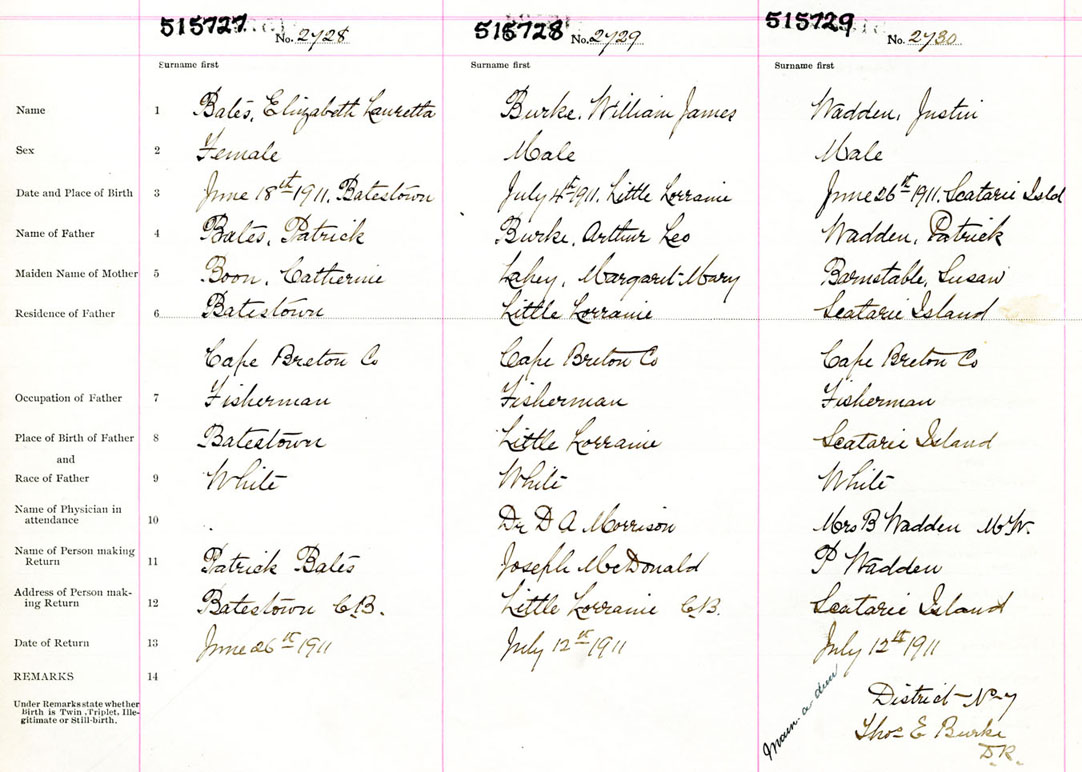 515727 No. 2728 515728 No. 2729 515729 No. 2730
Surname first Surname first Surname first
Name 1 Bates, Elizabeth Lauretta Burke, William James Wadden, Justin
Sex 2 Female Male Male
Date and Place of Birth 3 June 18th 1911, Batestown July 4th 1911, Little Lorraine June 26th 1911, Scatarie Isld
Name of Father 4 Bates, Patrick Burke, Arthur Leo Wadden, Patrick
Maiden Name of Mother 5 Boon, Catherine Lahey, Margaret Mary Barnstable, Susan
Residence of Father 6 Batestown Little Lorraine Scatarie Island
Cape Breton Co Cape Breton Co Cape Breton Co
Occupation of Father 7 Fisherman Fisherman Fisherman
Place of Birth of Father 8 Batestown Little Lorraine Scatarie Island
and
Race of Father 9 White White White
Name of Physician in
attendance 10 Dr D A Morrison Mrs B Wadden M.W.
Name of Person making
Return 11 Patrick Bates Joseph McDonald P Wadden
Address of Person mak-
ing Return 12 Batestown C.B. Little Lorraine C.B. Scatarie Island
Date of Return 13 June 26th 1911 July 12th 1911 July 12th 1911
REMARKS 14
Under Remarks state whether
Birth is Twin, Triplet, Ille-
gitimate or Still-birth.
District No 7
Thos E Burke
D.R.
Main-a-dieu